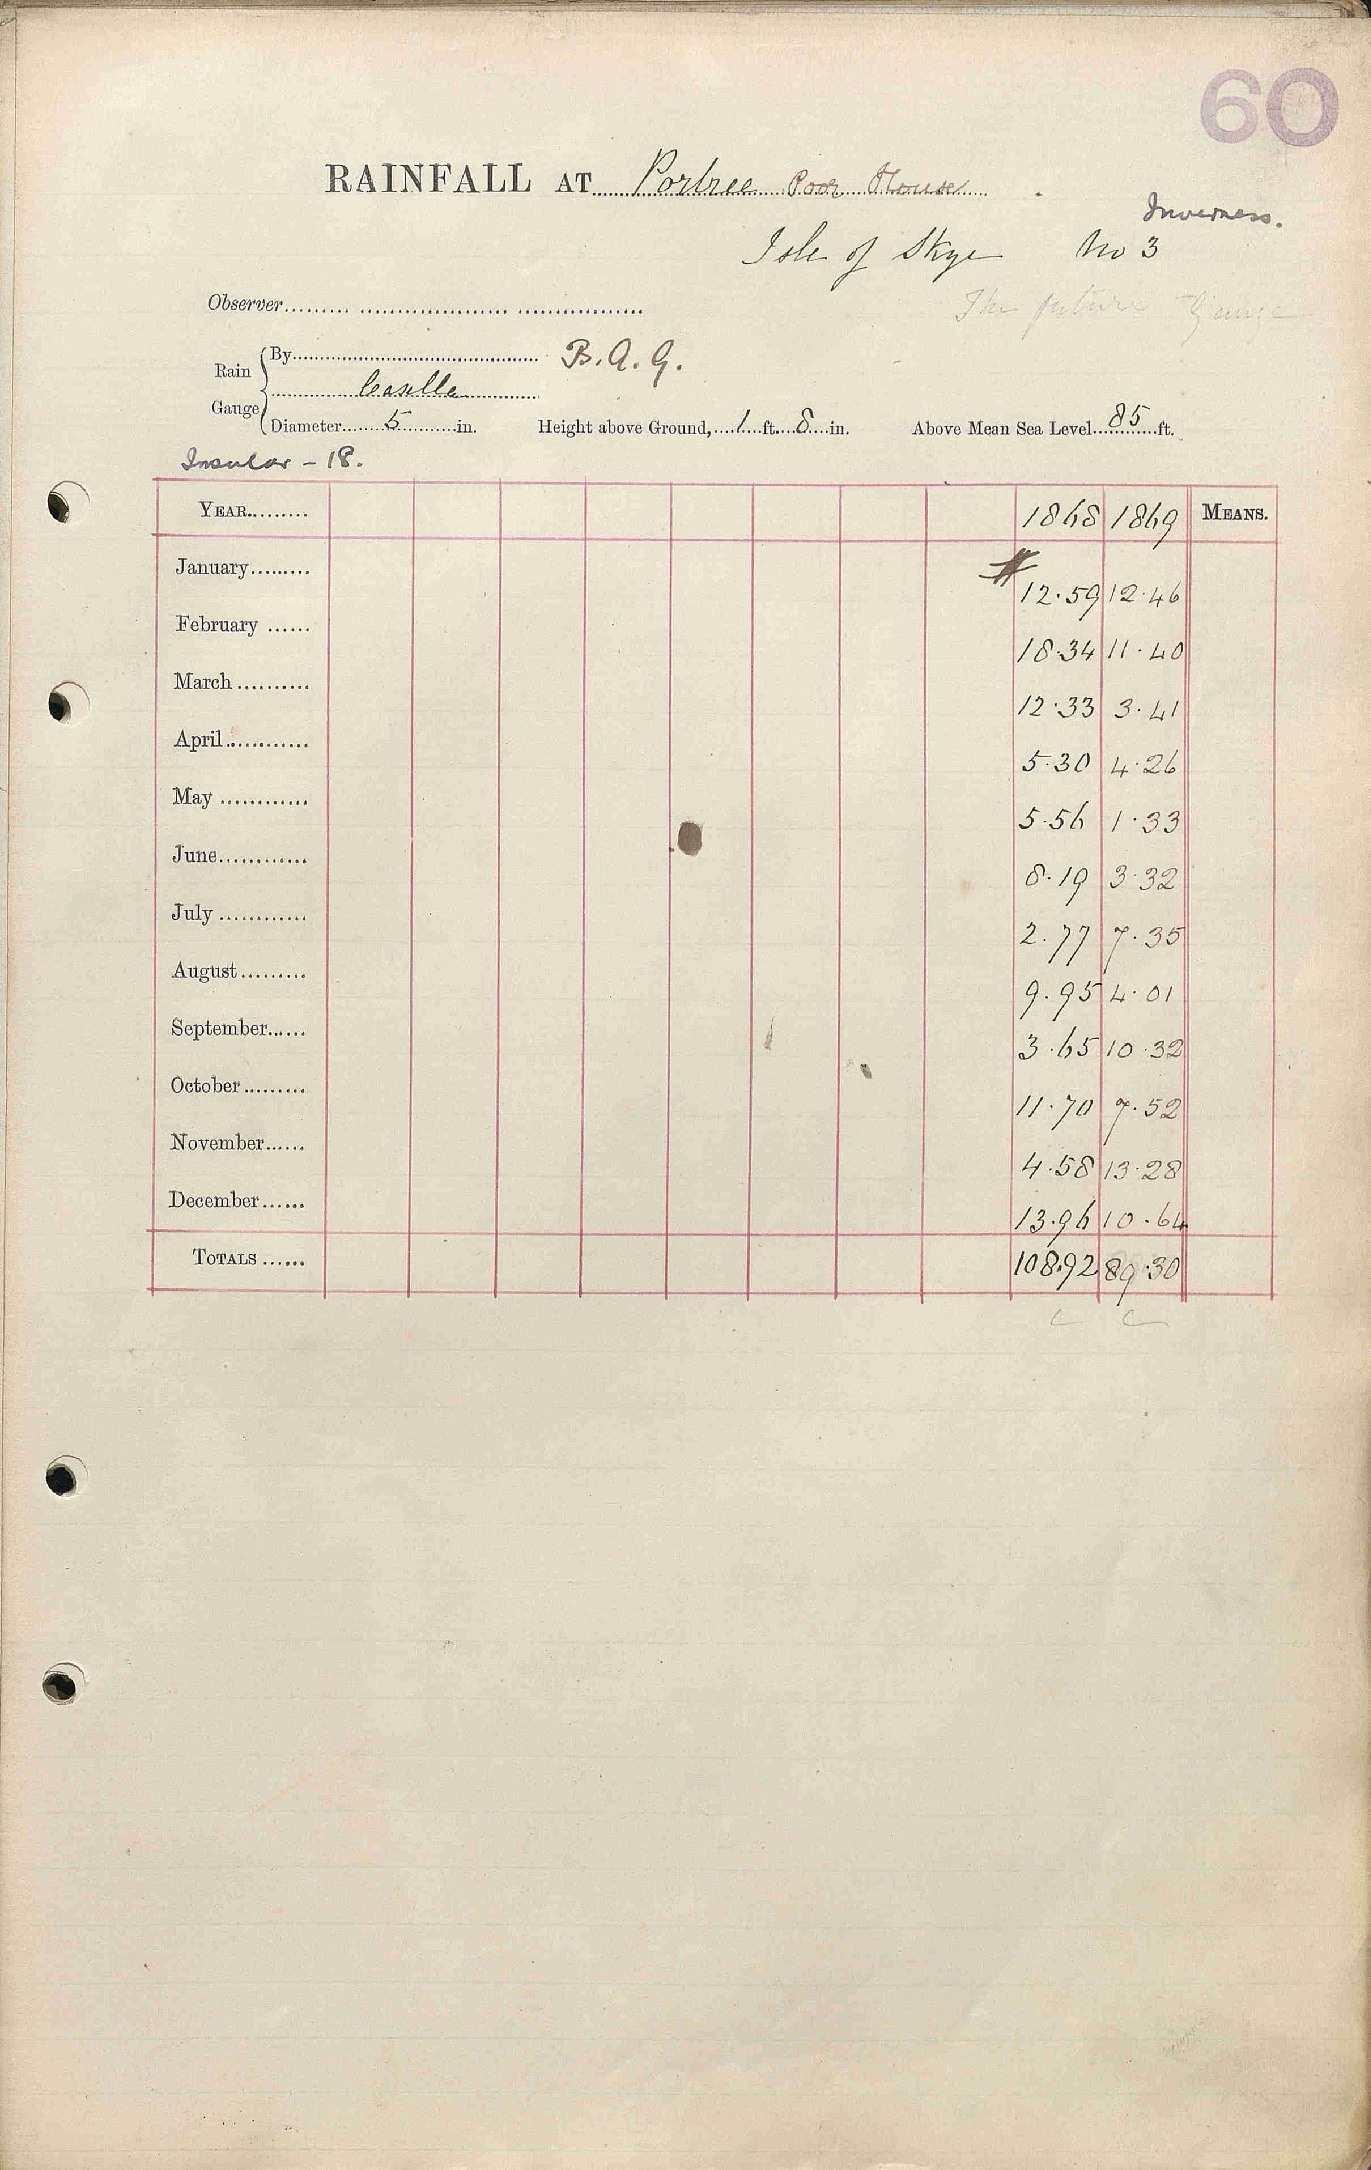 60
RAINFALL AT Portree Poor House
Inverness.
Isle of Skye No 3
The future Gauge
Observer
Rain Gauge
By B.A.G.
Casella
Diameter 5 in. Height above Ground, 1 ft. 8 in. Above Mean Sea Level 85 ft.
Insular - 18.
YEAR 1868 1869 MEANS.
January 12.59 12.46
February 18.34 11.40
March 12.33 3.41
April 5.30 4.26
May 5.56 1.33
June 8.19 3.32
July 2.77 7.35
August 9.95 4.01
September 3.65 10.32
October 11.70 7.52
November 4.58 13.28
December 13.96 10.64
TOTALS 108.92 89.30
c c